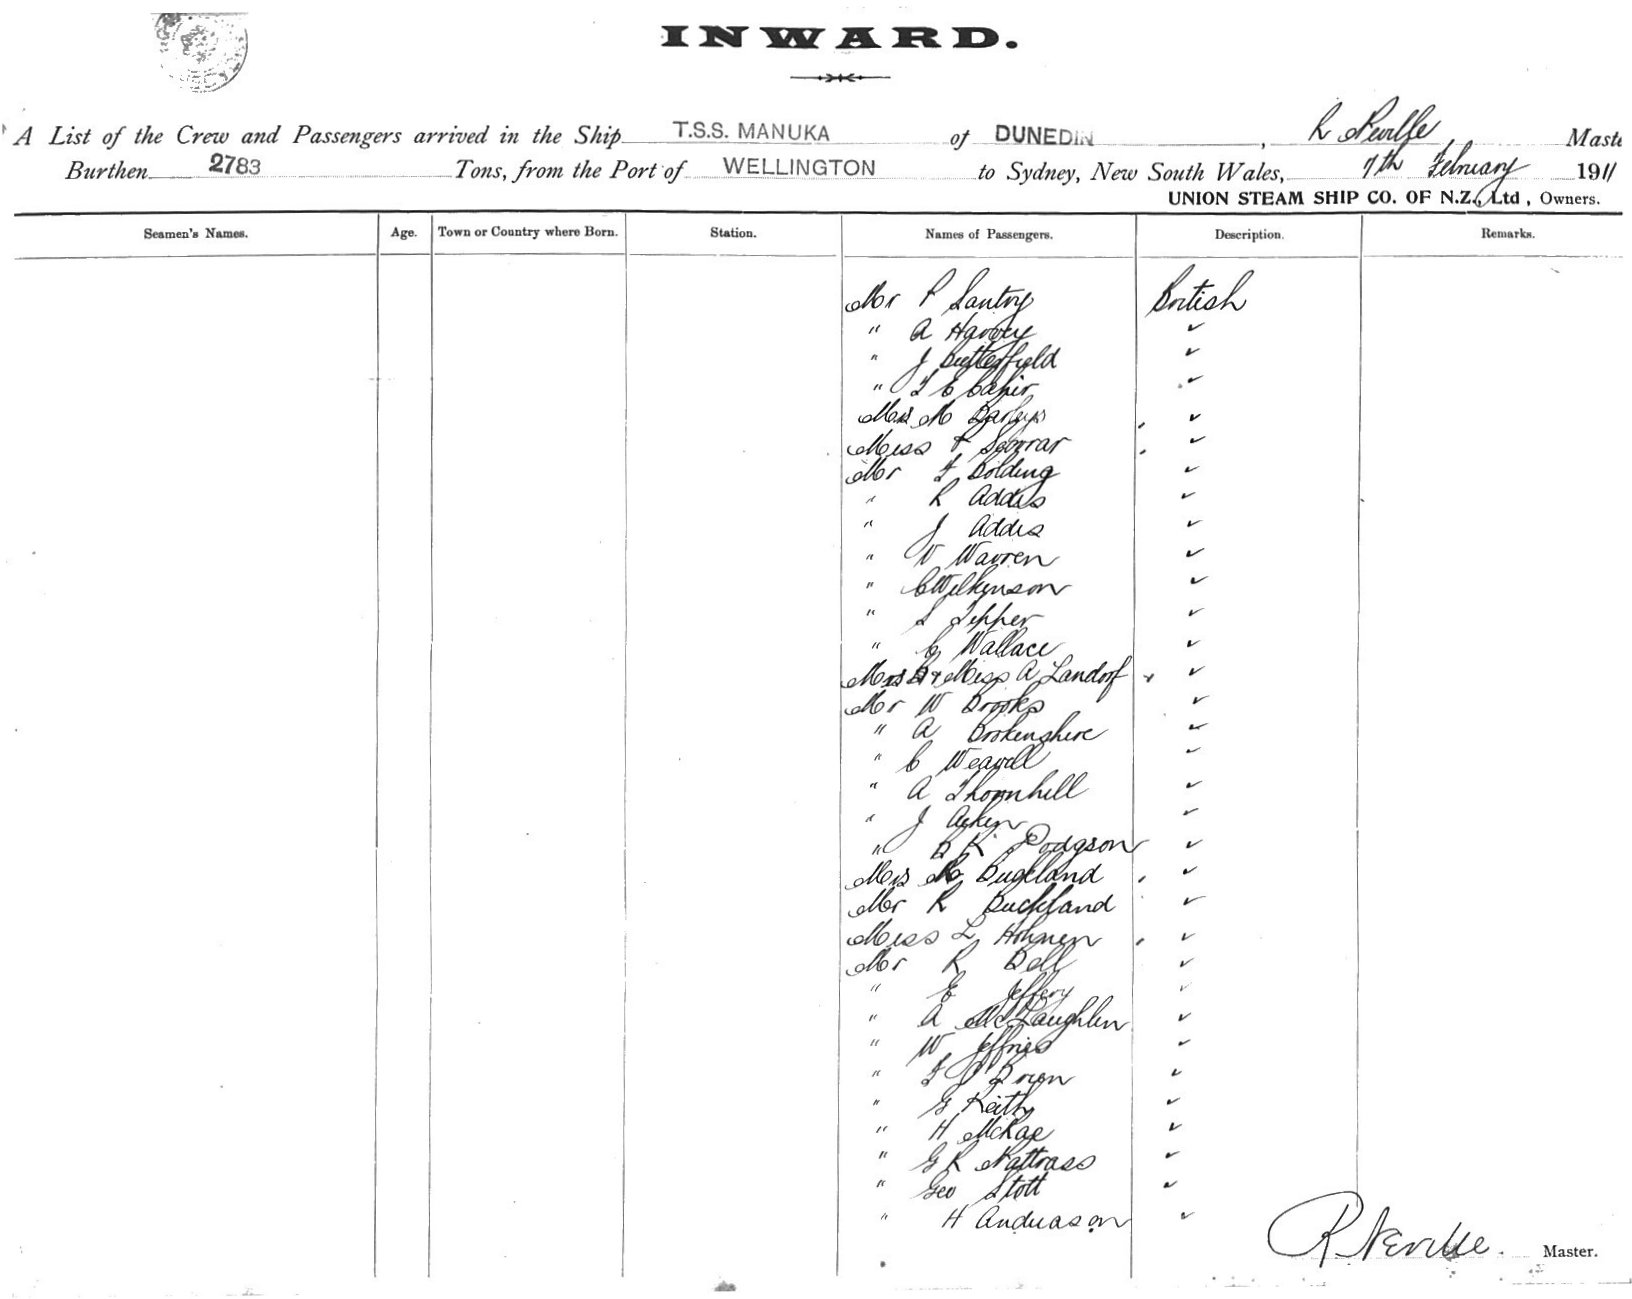 INWARD.
A List of the Crew and Passengers arrived in the Ship T.S.S. MANUKA of DUNEDIN, R Neville Maste
Burthen 2783 Tons, from the Port of WELLINGTON to Sydney, New South Wales, 7th February 1911
UNION STEAM SHIP CO. OF N.Z., Ltd, Owners.
Seamen's Names. Age. Town or Country where Born. Station. Names of Passengers. Description. Remarks.
Mr P Santry British
" A Harvey ✓
" J Butterfield ✓
" T E Cahir ✓
Mrs M ✓
Miss ✓
Mr F Dolding ✓
" R Addis ✓
" J Addis ✓
" V Warren ✓
" C Wilkinson ✓
" S Tepper ✓
" C Wallace ✓
Mrs & Miss A Landorf ✓
Mr W Brooks ✓
" A Brokenshire ✓
" C Weavell ✓
" A Thornhill ✓
" J ✓
" B K Podgson ✓
Mrs Buckland ✓
Mr R Buckland ✓
Miss L Hohnen ✓
Mr R Bell ✓
" E Jeffery ✓
" A McLaughlin ✓
" W Jeffries ✓
" ✓
" G Keith ✓
" H McRae ✓
" G R Nattrass ✓
" Geo Stott ✓
" H Anderason ✓
R Neville. Master.